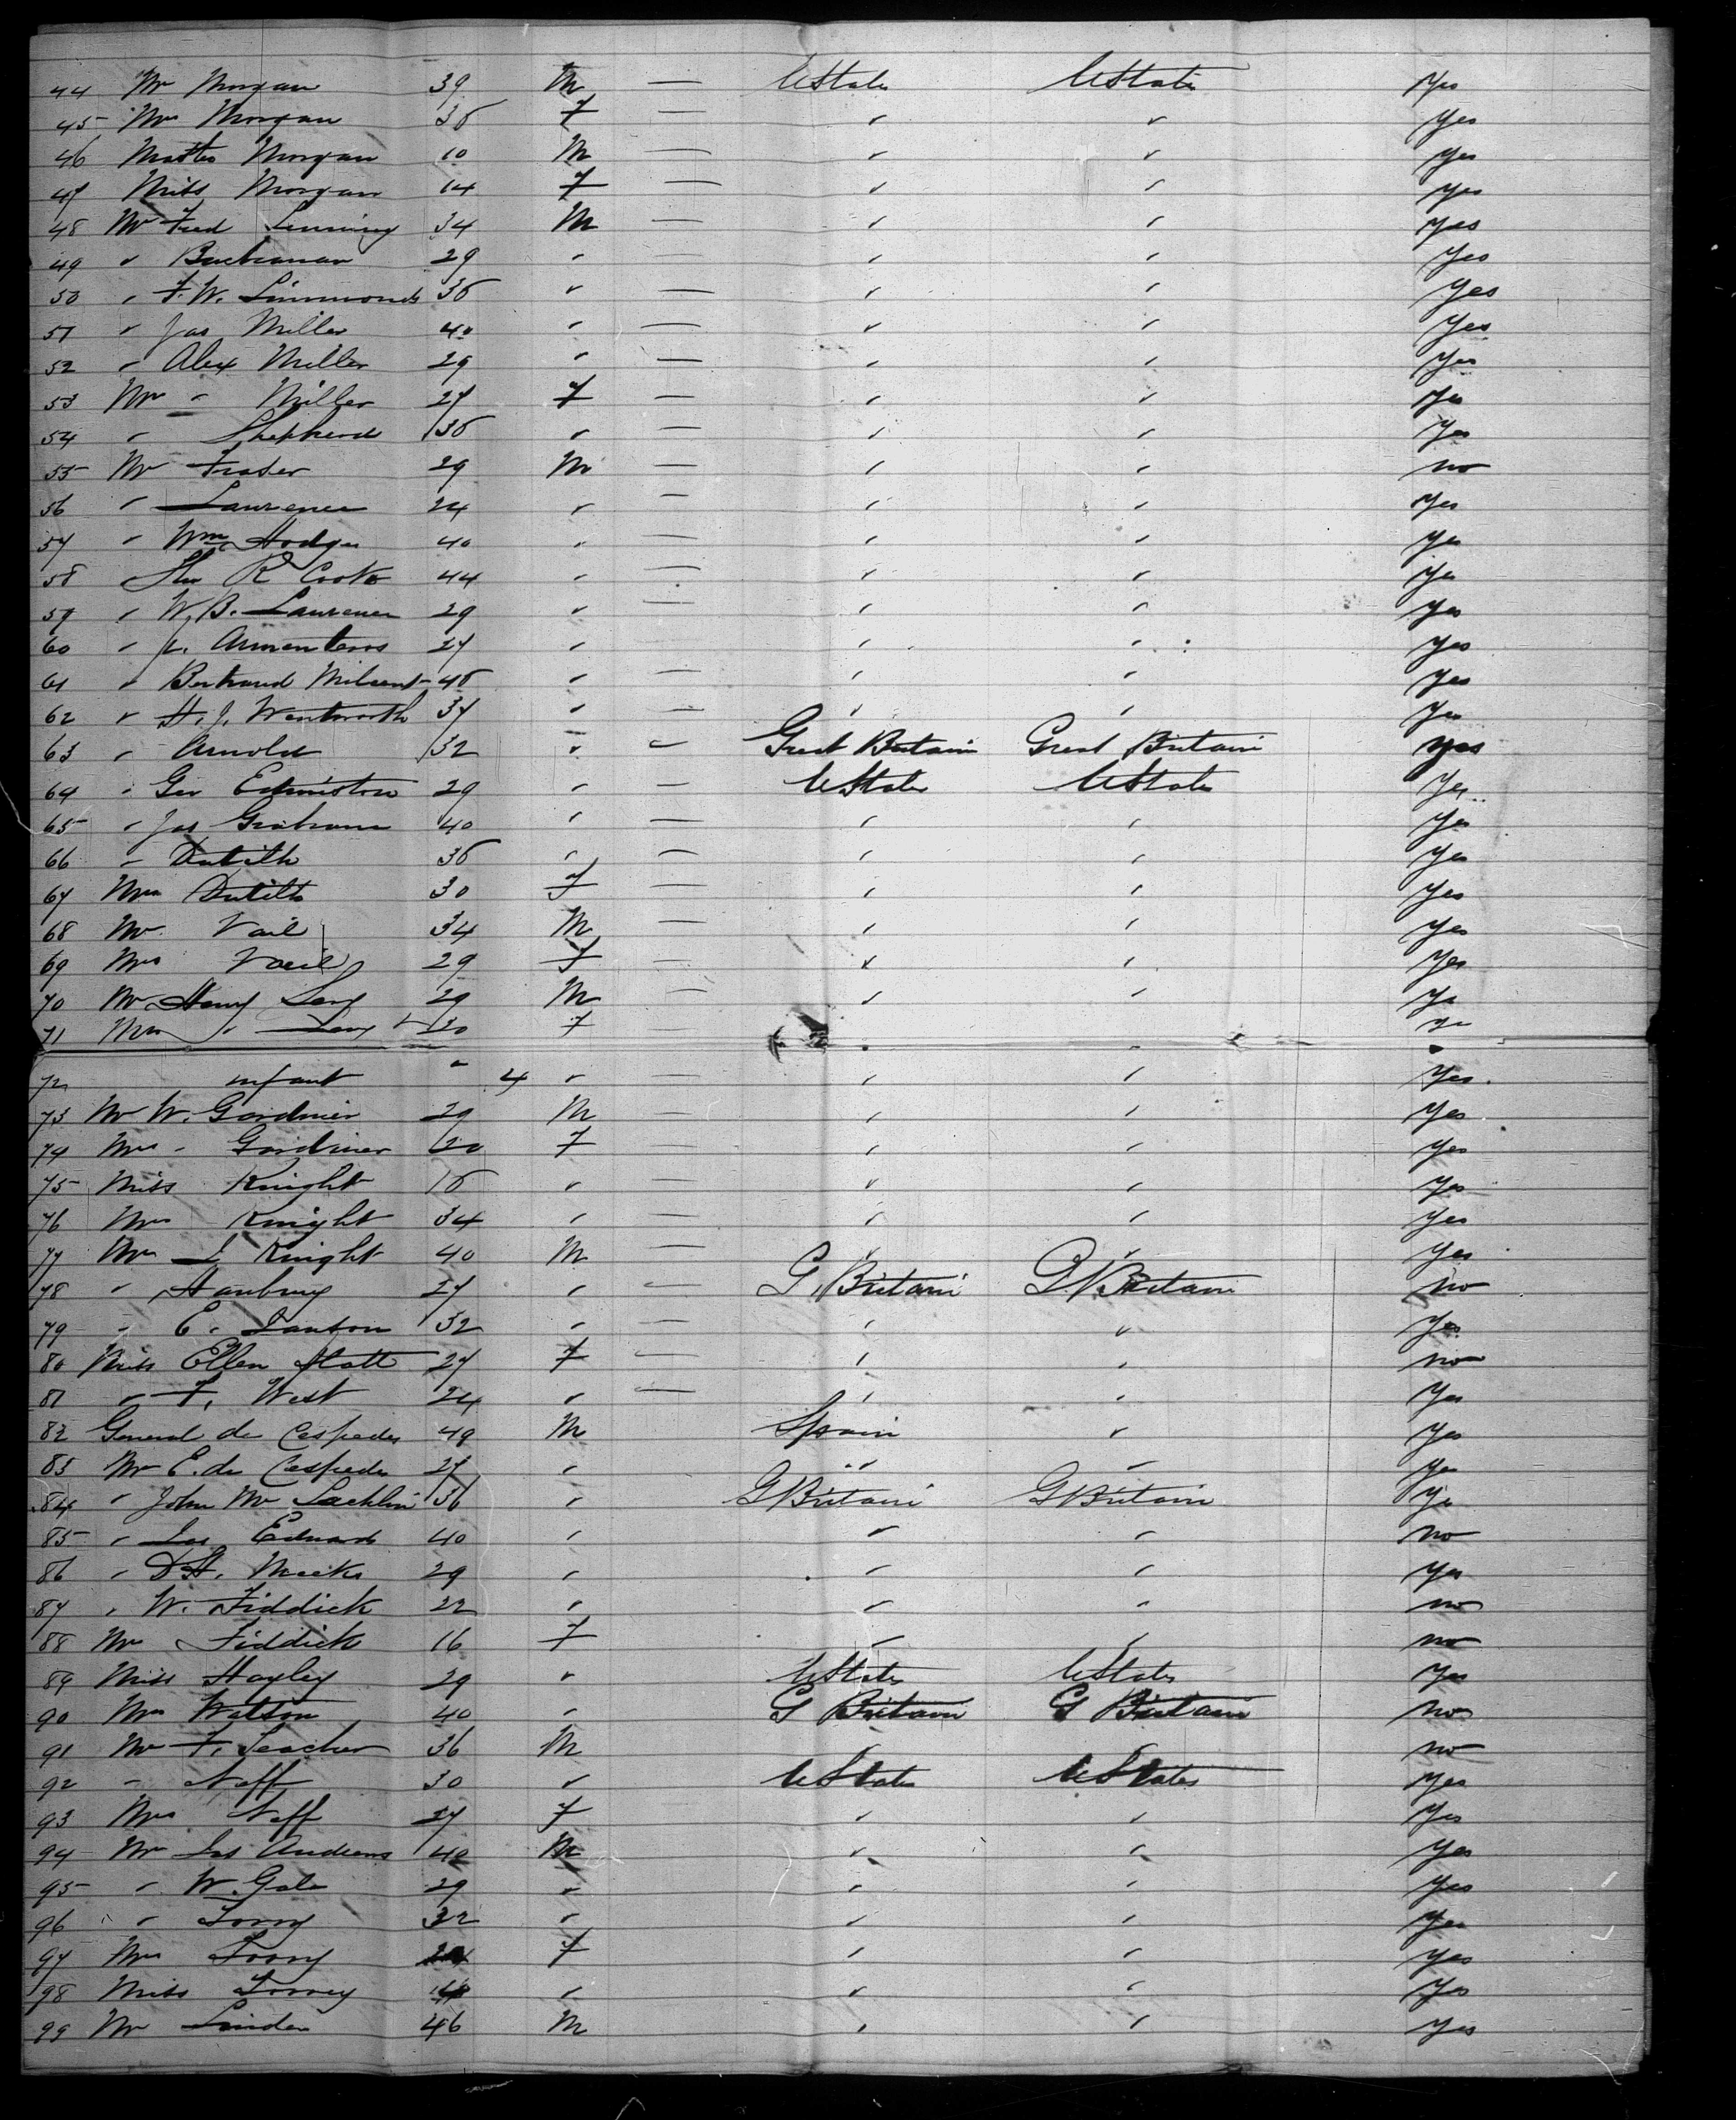 44 Mr Morgan 39 M — UStates UStates Yes
45 Mrs Morgan 36 F — " " Yes
46 Master Morgan 10 M — " " Yes
47 Miss Morgan 14 F — " " Yes
48 Mr Fred 34 M — " " Yes
49 " Buchanan 29 " — " " Yes
50 " F. W. Simmonds 36 " — " " Yes
51 " Jas Miller 40 " — " " Yes
52 " Alex Miller 29 " — " " Yes
53 Mrs " Miller 27 F — " " Yes
54 " Shepherd 36 " — " " Yes
55 Mr Fraser 29 M — " " no
56 " Laurence 24 " — " " Yes
57 " Wm Hodges 40 " — " " Yes
58 " R Cooke 44 " — " " Yes
59 " W. B. Laurence 29 " — " " Yes
60 " Armenteros 27 " — " " Yes
61 " Bertrand 46 " — " " Yes
62 " H. J. Wentworth 37 " — " " Yes
63 " Arnold 32 " — Great Britain Great Britain Yes
64 " Geo Edmiston 29 " — UStates UStates Yes
65 " Jas Graham 40 " — " " Yes
66 " Dutilh 36 " — " " Yes
67 Mrs Dutilh 30 F — " " Yes
68 Mr Vail 34 M — " " Yes
69 Mrs Vail 29 F — " " Yes
70 Mr Henry 29 M — " " Yes
71 Mrs " 30 F — " " Yes
72 infant " 4 " " " Yes
73 Mr W. Gardiner 29 M — " " Yes
74 Mrs " Gardiner 20 F — " " Yes
75 Miss Knight 16 " — " " Yes
76 Mrs Knight 34 " — " " Yes
77 Mr Knight 40 M — " " Yes
78 " Hanbury 27 " — G. Britain G. Britain no
79 " E. 32 " — " " Yes
80 Miss Ellen Statt 27 F — " " no
81 " F. West 24 " — " " Yes
82 General de Cespedes 49 M Spain " Yes
83 Mr E. de Cespedes 27 " " " Yes
84 " John McLachlin 36 " G Britain G Britain Yes
85 " Jas Edward 40 " " " no
86 " D H. Meeks 29 " " " Yes
87 " W. Fiddick 22 " " " no
88 Mrs Fiddick 16 F " " no
89 Miss Hayley 29 " UStates UStates Yes
90 Mrs Watson 40 " G Britain G Britain no
91 Mr F. Teacher 36 M " " no
92 " Neff 30 " UStates UStates Yes
93 Mrs Neff 27 F " " Yes
94 Mr Jas Andrews 40 M " " Yes
95 " W. Gale 29 " " " Yes
96 " Torry 32 " " " Yes
97 Mrs Torry F " " Yes
98 Miss Torrey " " " Yes
99 Mr Linder 46 M " " Yes